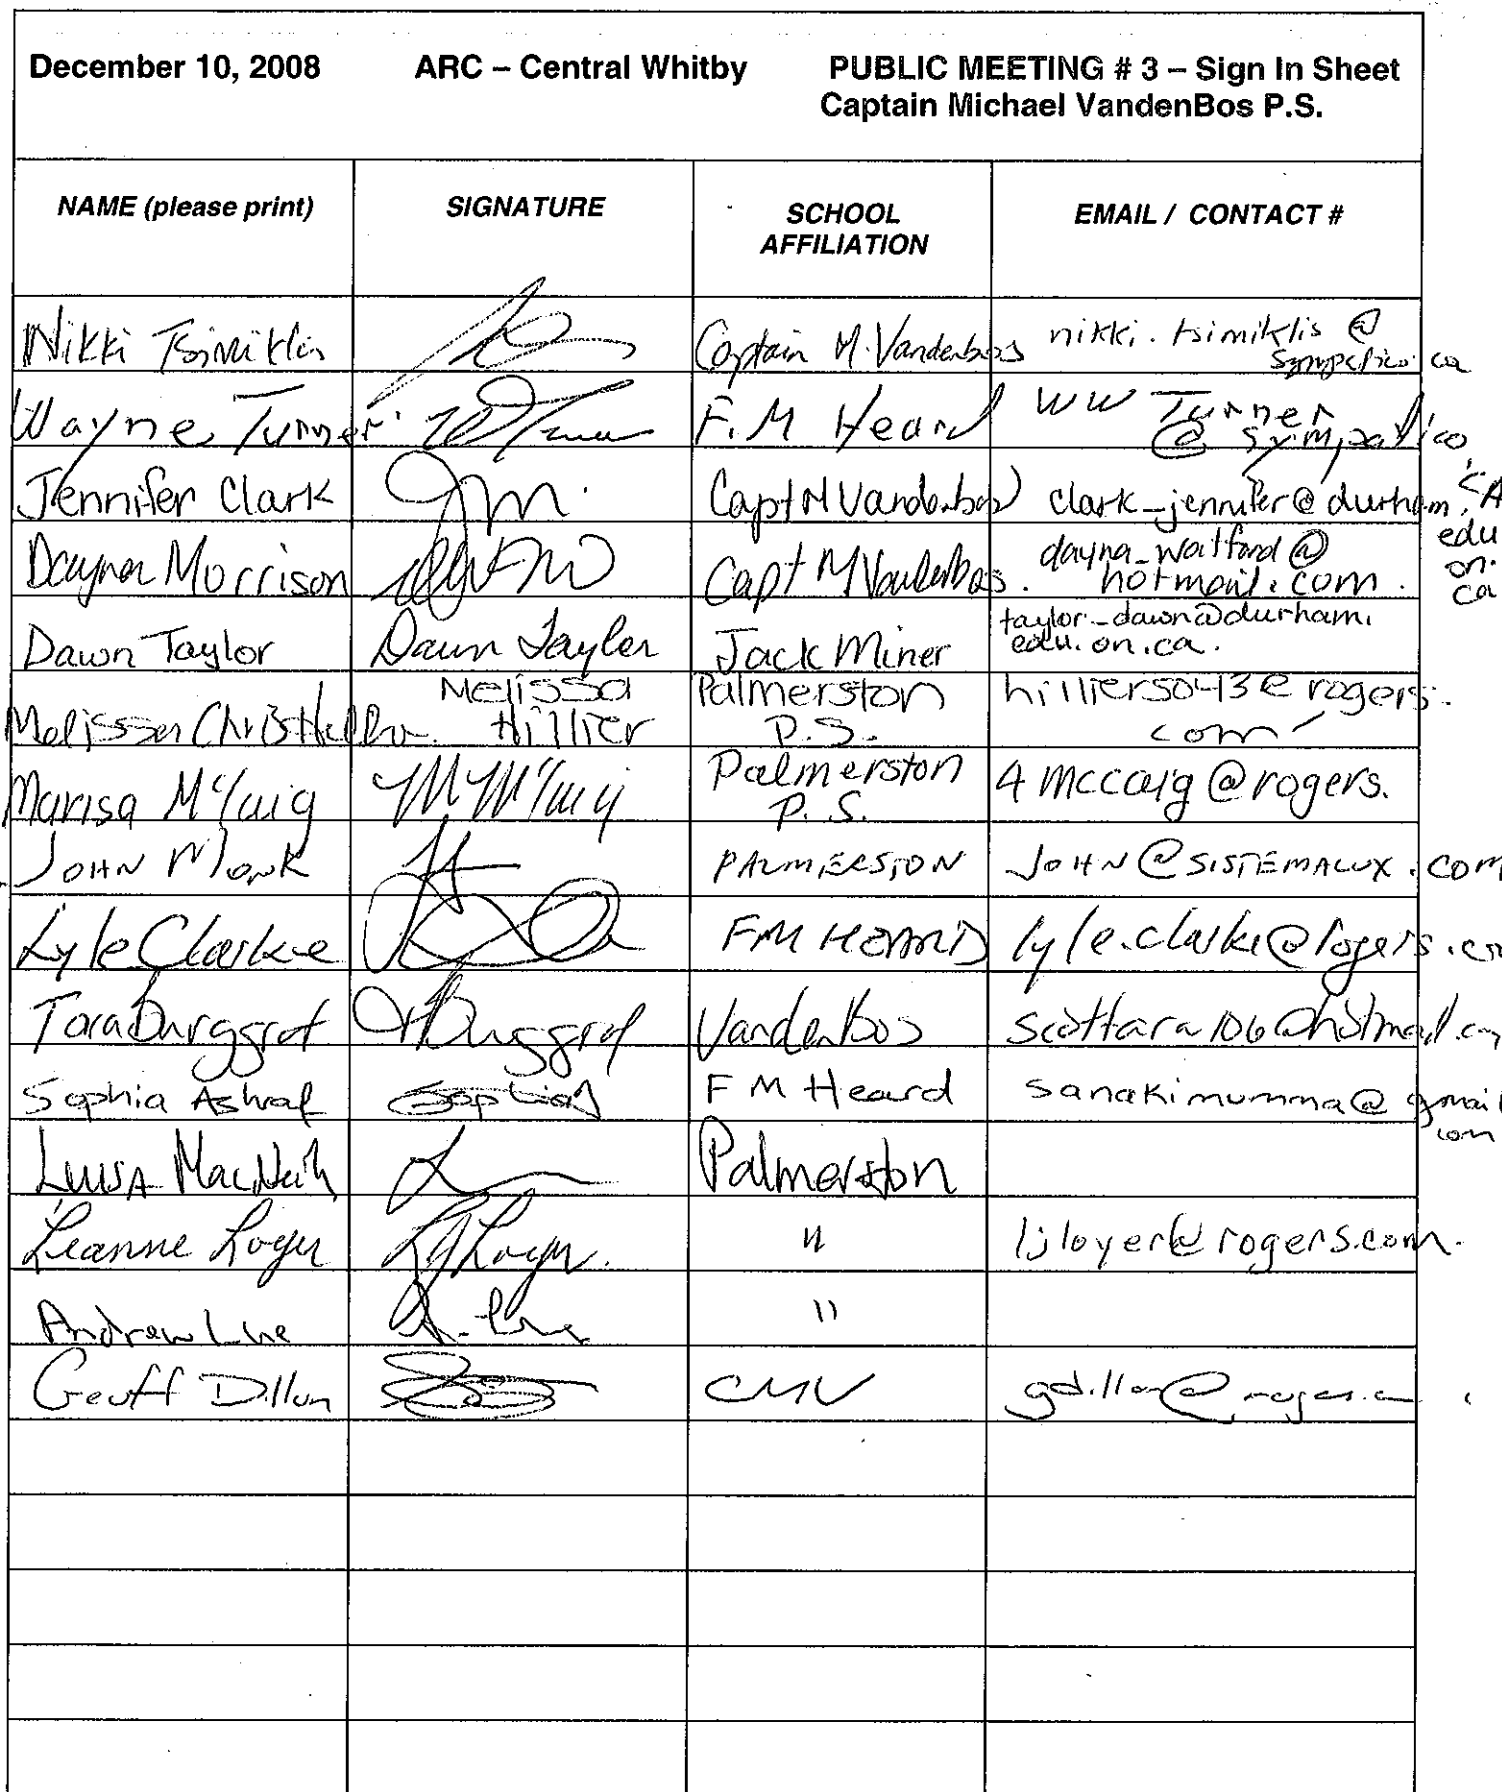 December 10, 2008 ARC – Central Whitby PUBLIC MEETING # 3 – Sign In Sheet
Captain Michael VandenBos P.S.
NAME (please print) SIGNATURE SCHOOL AFFILIATION EMAIL / CONTACT #
Nikki Tsimiklis Captain M. Vandenbos nikki.tsimiklis@
sympatico.ca
Wayne Turner F.M Heard WW Turner
@ sympatico.CA
Jennifer Clark Capt M Vandenbos clark_jennifer@durham.edu.on.ca
Dayna Morrison Capt M Vandenbos. dayna_watford@
hotmail.com.
Dawn Taylor Dawn Taylor Jack Miner taylor_dawn@durham.
edu.on.ca.
Melissa Melissa Palmerston hilliers043@rogers.
Hillier P.S. com
Marisa McCaig M McCaig Palmerston 4mccaig@rogers.
P.S.
JOHN Monk PALMERSTON JOHN@SISTEMALUX.COM
Lyle Clarke FM HEARD lyle.clarke@rogers.com
Tara Burggraf TBurggraf VandenBos scottara106@hotmail.com
Sophia Ashraf Sophia F M Heard sanakimumma@gmail
com
Luisa Palmerston
Leanne Loyer LJ Loyer. " ljloyer@rogers.com.
Andrew "
Geoff Dillon CMV gdillon@rogers.